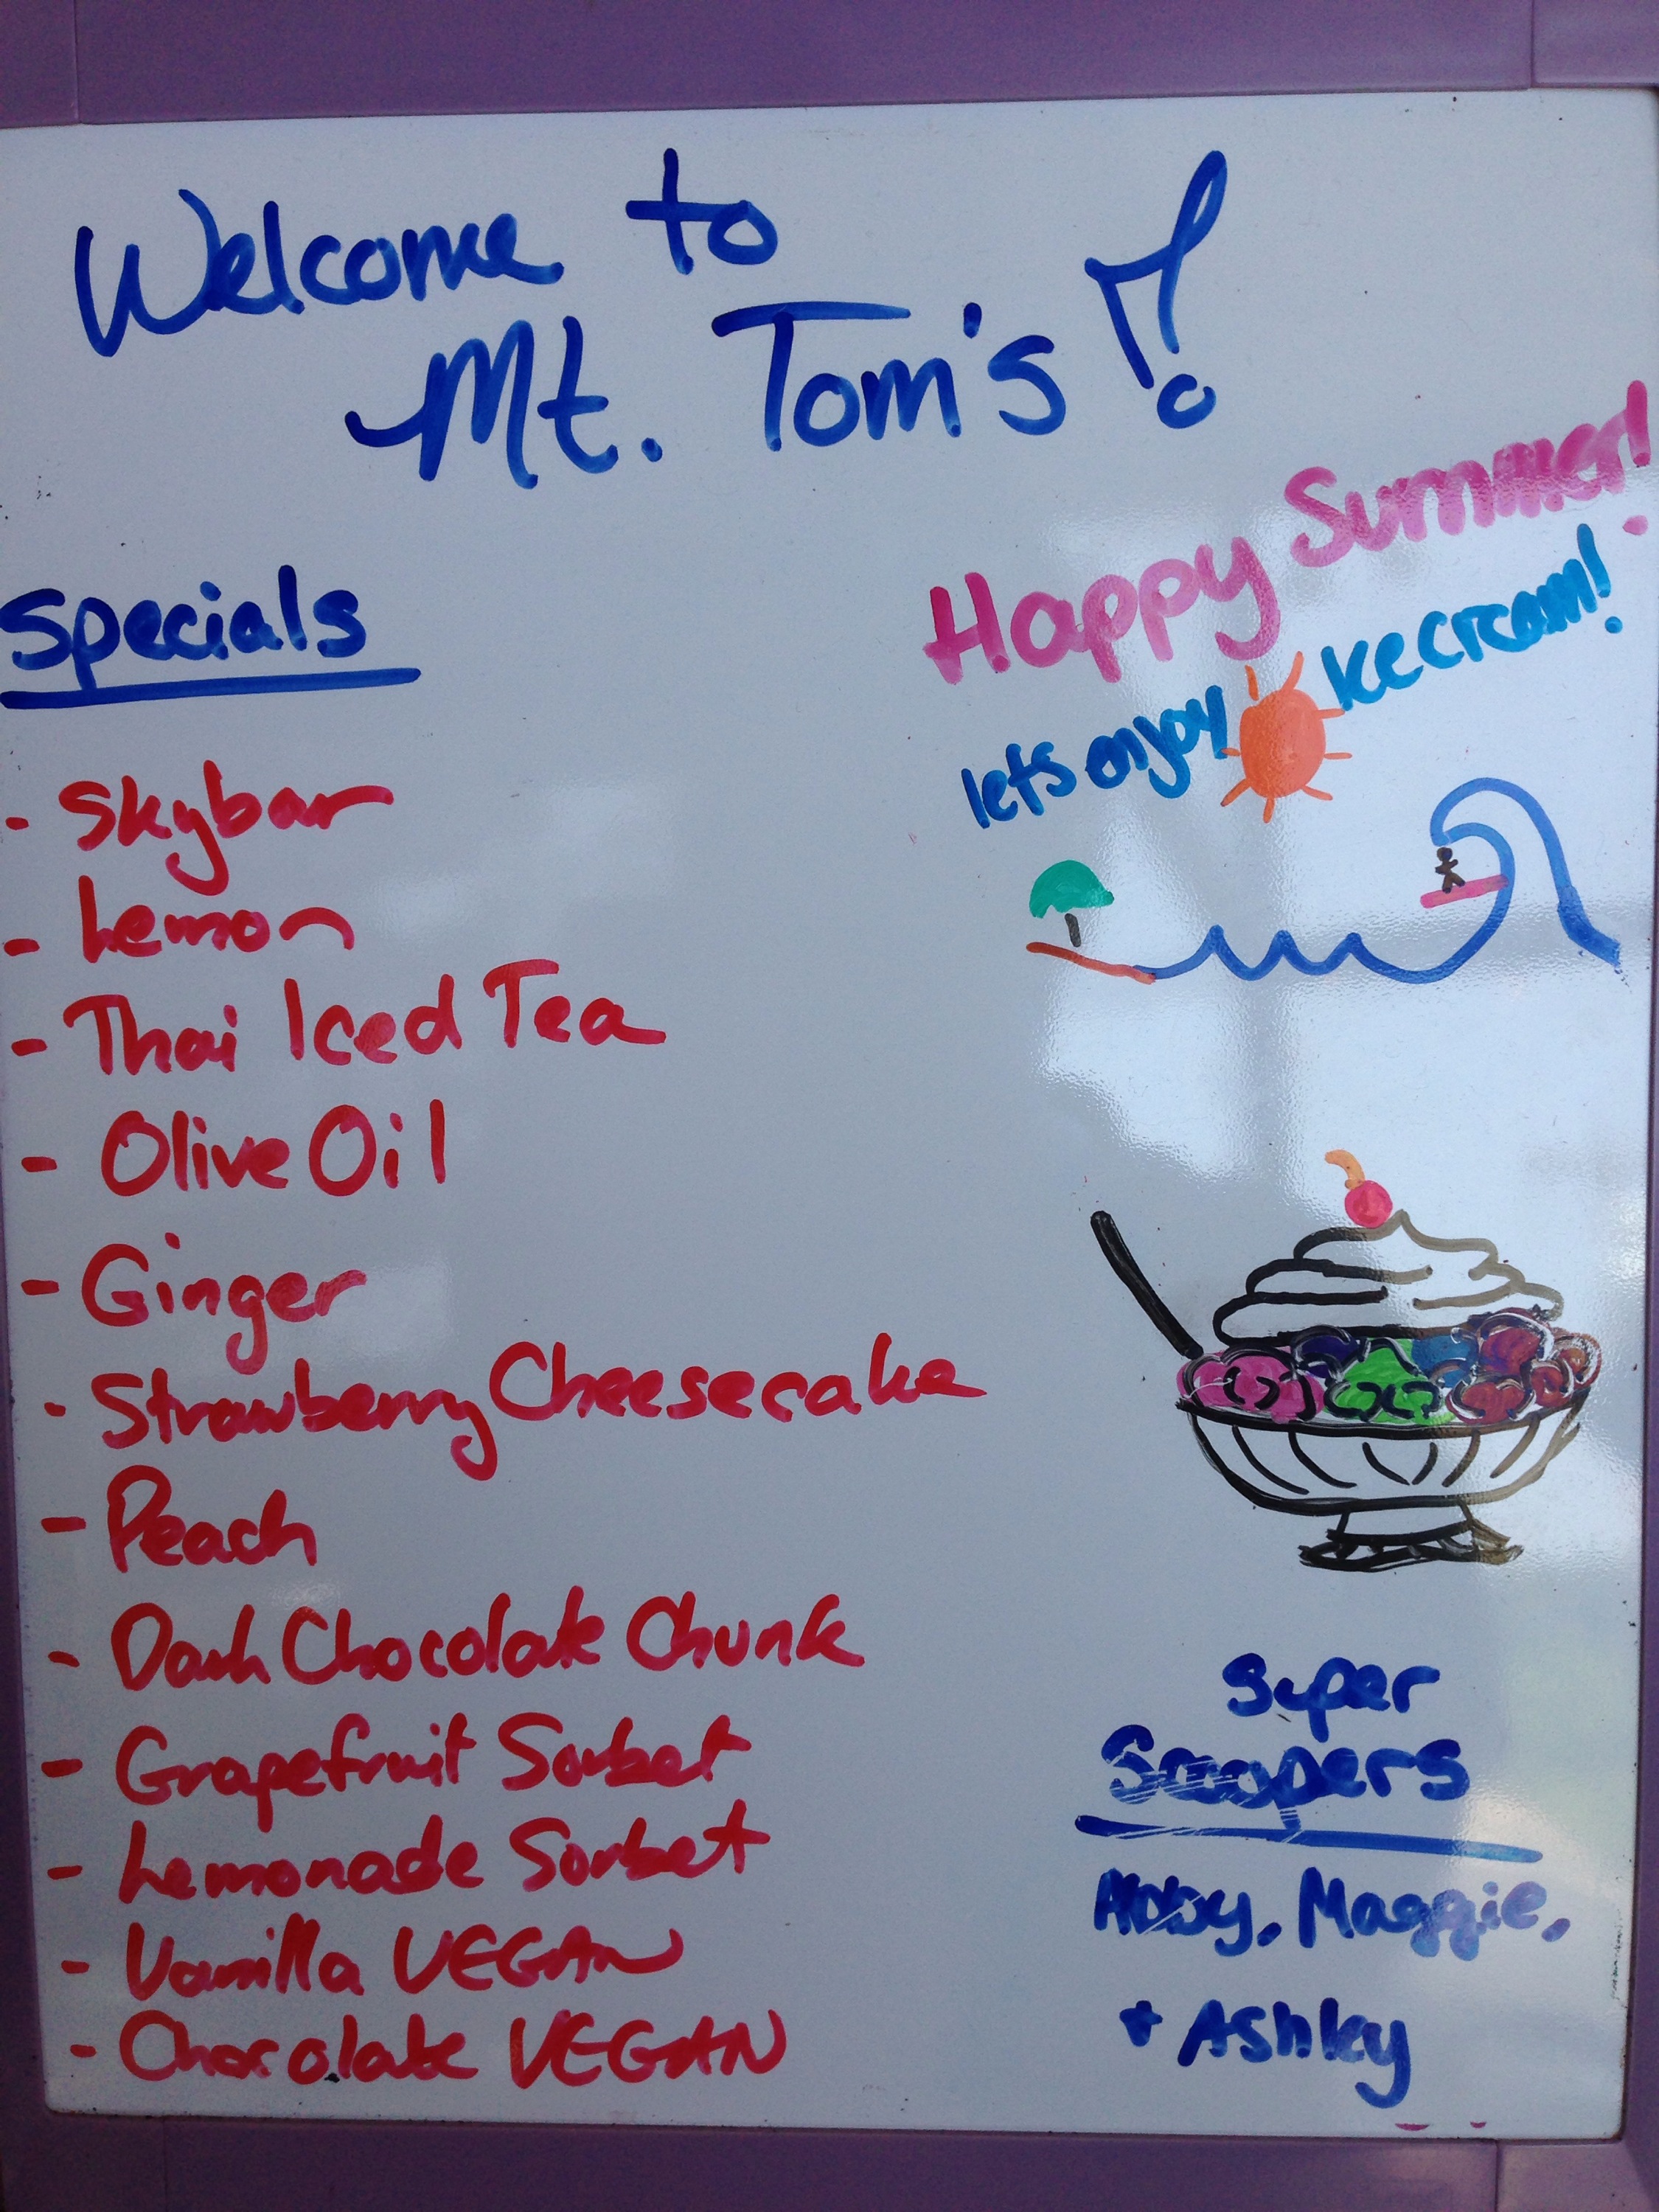 Welcome to
Mt. Tom's!
Happy Summer!
lets enjoy Ice cream!
Specials
- Skybar
- Lemon
- Thai Iced Tea
- Olive Oil
- Ginger
- Strawberry Cheesecake
- Peach
- Dark Chocolate Chunk
- Grapefruit Sorbet
- Lemonade Sorbet
- Vanilla VEGAN
- Chocolate VEGAN
Super
Scoopers
Abby, Maggie,
+ Ashley